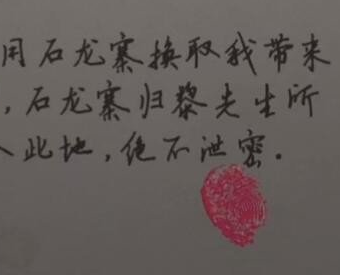 用石龙寨换取我带来
，石龙寨归黎先生所
入此地，绝不泄密.